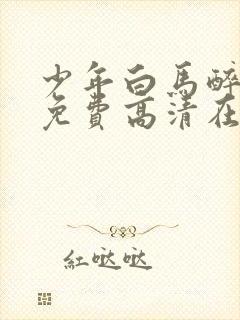 少年白馬醉
免費高清在
紅哒哒